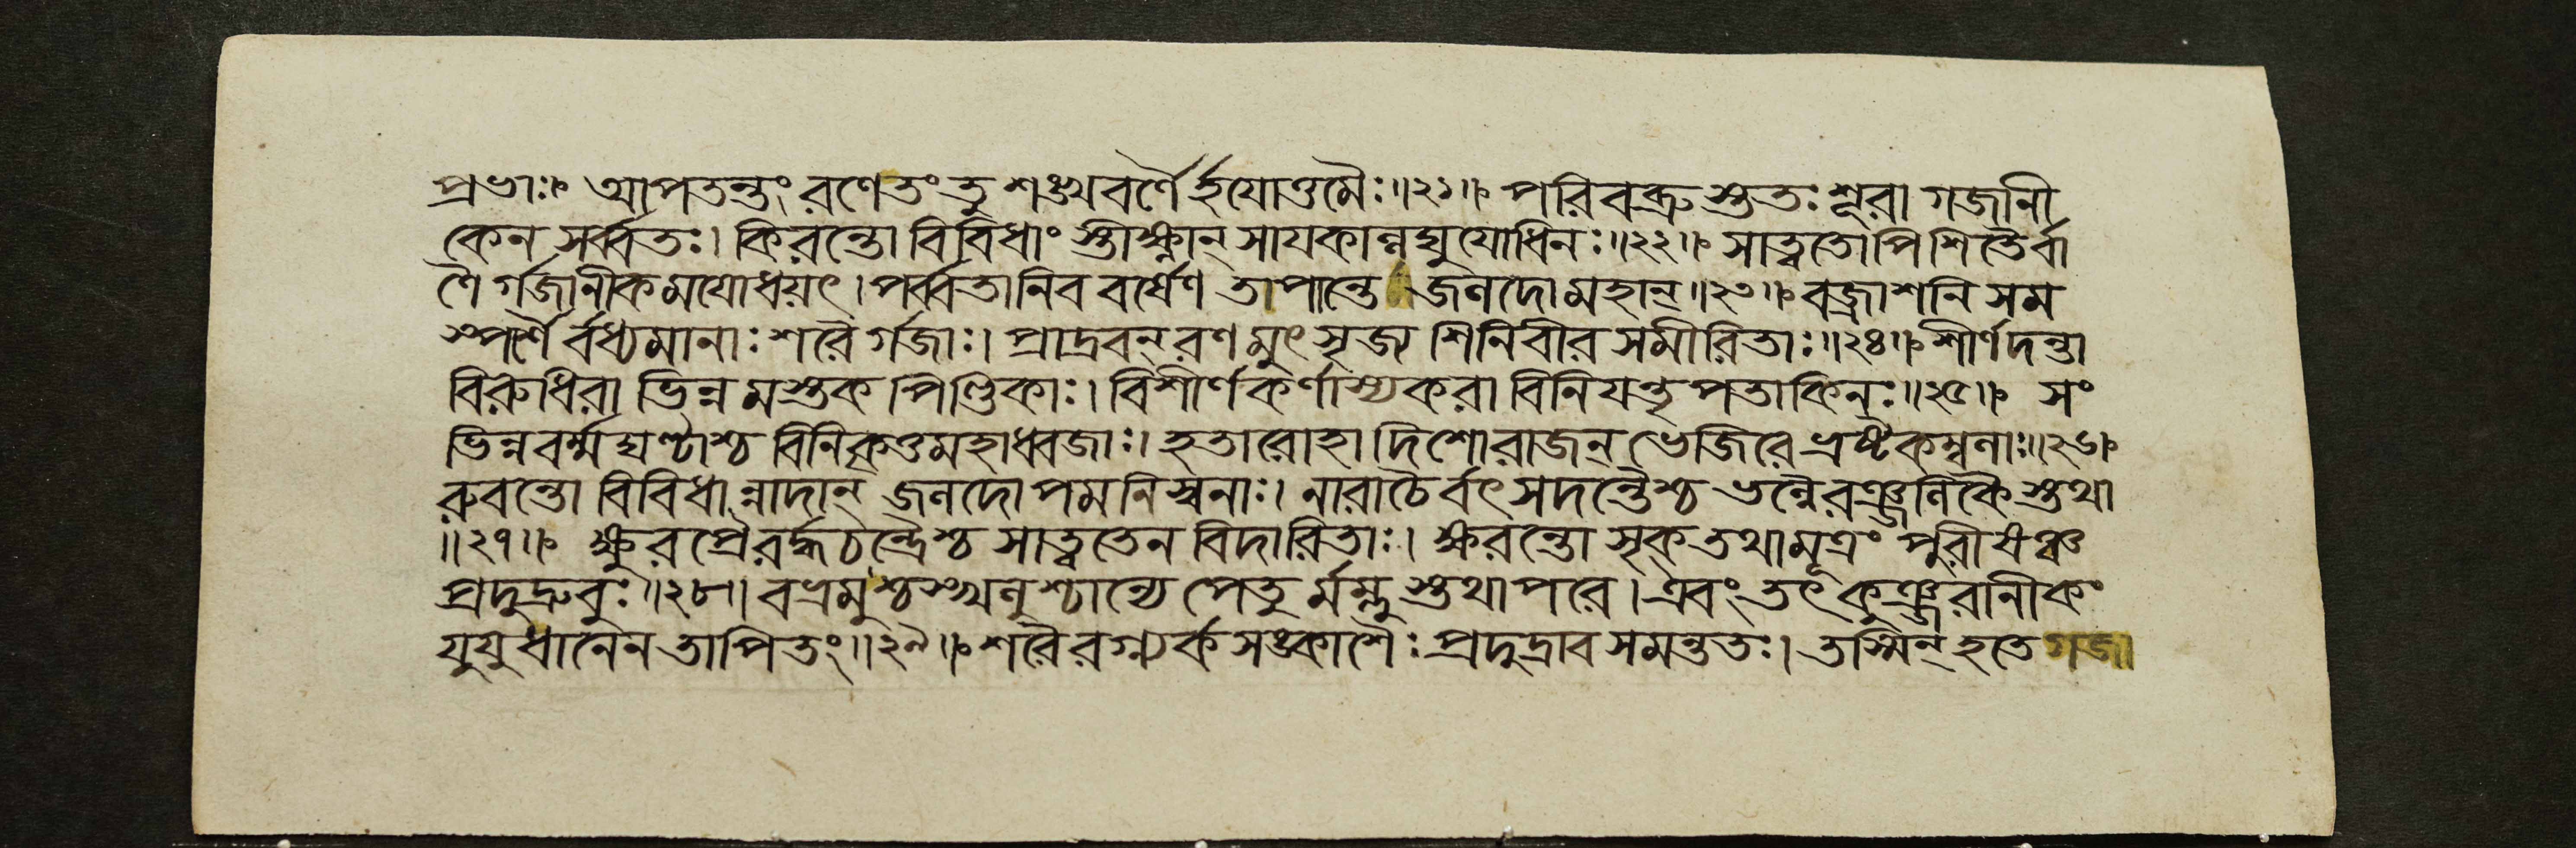 প্রভাঃ॥ আপতন্তং রণে তং তু শঙ্খবর্ণৈর্হযোত্তমৈঃ॥২১॥ পরিবব্রুস্ততঃ শূরা গজানী
কেন সর্ব্বতঃ। কিরন্তো বিবিধাংস্তীক্ষ্ণান্ সাযকান্নঘুযোধিনঃ॥২২॥ সাত্বতোপি শিতৈর্বা
ণৈর্গজানীকমযোধয়ৎ। পর্ব্বতানিব বর্ষেণ তাপান্তে জনদোমহান্॥২৩॥ বজ্রাশনিসম
স্পর্শৈর্বধ্যমানাঃ শরৈর্গজাঃ। প্রাদ্রবন্ রণমুৎসৃজ্য শিনিবীরসমীরিতাঃ॥২৪॥ শীর্ণদন্তা
বিরুধিরা ভিন্নমস্তকপিণ্ডিকাঃ। বিশীর্ণকর্ণাস্যকরা বিনিযন্তৃপতাকিনঃ॥২৫॥ সং
ভিন্নবর্ম্মঘণ্টাশ্চ বিনিকৃত্তমহাধ্বজাঃ। হতারোহা দিশো রাজন্ ভেজিরে ভ্রষ্টকম্বনাঃ॥২৬॥
রুবন্তো বিবিধান্নাদান্ জনদোপমনিস্বনাঃ। নারাচৈর্বৎসদন্তৈশ্চ ভন্নৈরঞ্জনিকৈস্তথা
॥২৭॥ ক্ষুরপ্রৈরর্দ্ধচন্দ্রৈশ্চ সাত্বতেন বিদারিতাঃ। ক্ষরন্তোসৃক্ তথা মূত্রং পুরীষঞ্চ
প্রদুদ্রুবুঃ॥২৮॥ বভ্রমুশ্চস্খনুশ্চান্যে পেতুর্মম্নুস্তথাপরে। এবং তৎ কুঞ্জরানীকং
যুযুধানেন তাপিতং॥২৯॥ শরৈরগ্ন্যর্কসঙ্কাশৈঃ প্রদুদ্রাব সমন্ততঃ। তস্মিন্ হতে গজা